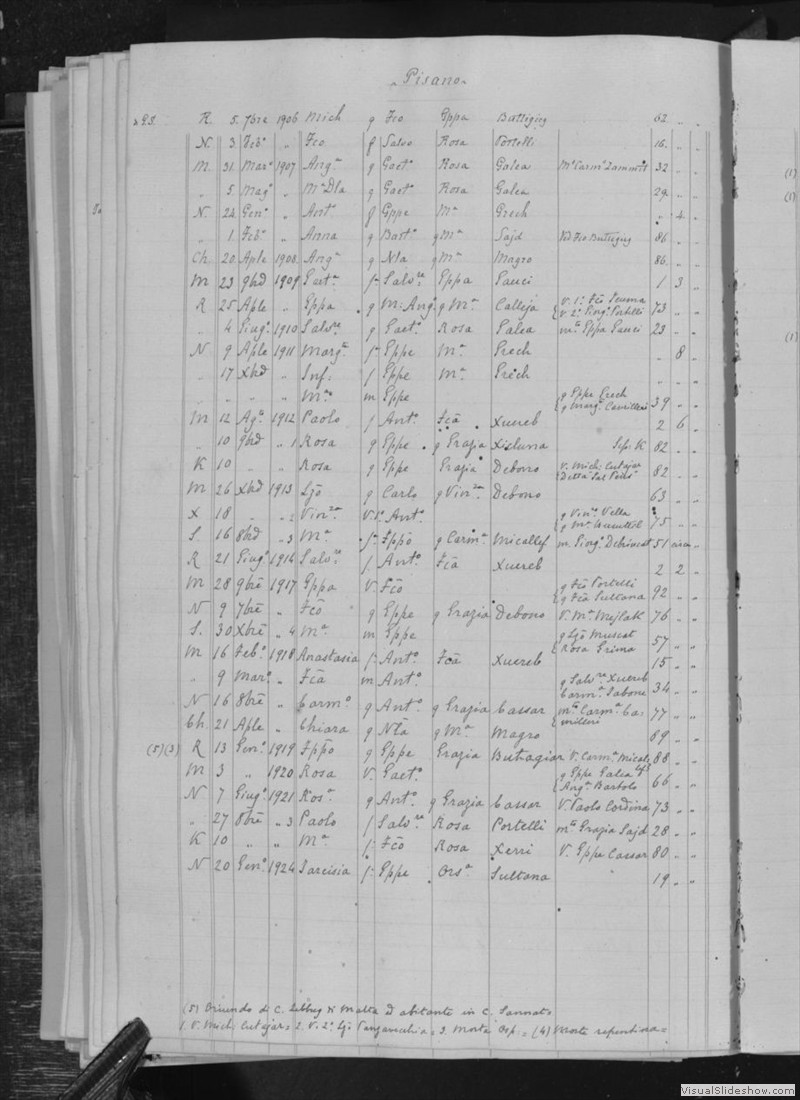 Pisano
R. 5. 7bre 1906 Mich g Fco Eppa Buttigieg 62 " "
N. 3. Feb.º " Fco f Salvo Rosa Portelli 16. " "
M. 31. Mar.º 1907 Ang.ª g Gaet.º Rosa Galea Mª Carm.º Zammitt 32 " "
" 5. Mag.º " Mª Dla g Gaet.º Rosa Galea 29. " "
N. 24. Gen.º " Ant.º f Gppe M.ª Grech " 4 "
" 1. Feb.º " Anna g Bart.º g Mª Sajd Vd Fco Buttigieg 86 " "
Ch. 20 Aple 1908. Ang.ª g Nla g Mª Magro 86. " "
M 23 9bre 1909 Salv.re Eppa Gauci 1 3 "
R 25 Aple " Eppa g M. Ang.º g M.ª Calleja V. 1.º Portelli 73 " "
" 4 Giug.º 1910 Salv.re g Gaet.º Rosa Galea mª Eppa Gauci 23 " "
N 9 Aple 1911 Marg.ª f Gppe M.ª Grech " 8 "
" 17 Xbre " Inf. f Gppe M.ª Grech " " "
" " " " M.ª m Gppe g Gppe Grech
g Marg.ª Camilleri 39 " "
M 12 Ag.º 1912 Paolo f Ant.º Fcā Xuereb 2 6 "
" 10 9bre " 1 Rosa g Gppe g Grazia Xicluna Sep. K 82 " "
K 10 " " Rosa g Gppe Grazia Debono V. Mich. Cutajar 82 " "
M 26 Xbre 1913 Ljō g Carlo g Vin.za Debono 63 " "
X 18 " " 2 Vin.za V. 1.º Ant.º g Vin.º Vella
g Mª 75 " "
S. 16 8bre " 3 M.ª f Fppō g Carm.ª Micallef m. 51 " "
R 21 Giug.º 1916 Salv.re f Ant.º Fcā Xuereb 2 2 "
M 28 9bre 1917 Eppa V. Fcō g Fcō Portelli
g Fcā Sultana 92 " "
N 9 7bre " Fcō g Gppe g Grazia Debono V. M.ª Mejlak 76 " "
S. 30 Xbre " 4 M.ª m Gppe g Ljō Muscat
Rosa Grima 57 " "
M 16 Feb.º 1918 Anastasia f Ant.º Fcā Xuereb 15 " "
" 9 Mar.º " Fcā m Ant.º g Salv.re Xuereb
Carm.ª 34 " "
N 16 8bre " Carm.º g Ant.º g Grazia Cassar mª Carm.ª Ca-
milleri 77 " "
Ch. 21 Aple " Chiara g Nlā g M.ª Magro 89 " "
(5) (3) R 13 Gen.º 1919 Fppō g Gppe Grazia Buttagiar V. Carm.ª 88 " "
M 3 " 1920 Rosa V. Gaet.º g Gppe Galea
Ang.ª Bartolo 66 " "
N 7 Giug.º 1921 Rosª g Ant.º g Grazia Cassar V. Paolo Cordina 73 " "
" 27 8bre " 3 Paolo f Salv.re Rosa Portelli mª Grazia Sajd 28 " "
K 10 " " M.ª f Fcō Rosa Xerri V. Gppe Cassar 80 " "
N 20 Gen.º 1924 Tarcisia f Gppe Ors.ª Sultana 19 " "
(5) Oriundo di C. Zebbug di Malta D abitante in C. Sannat
1. V. Mich. Cutajar = 2. V. 2.º Ljō = 3. Morta Osp. = (4) Morta repentina =
(1)
(1)
(1)
VisualSlideshow.com